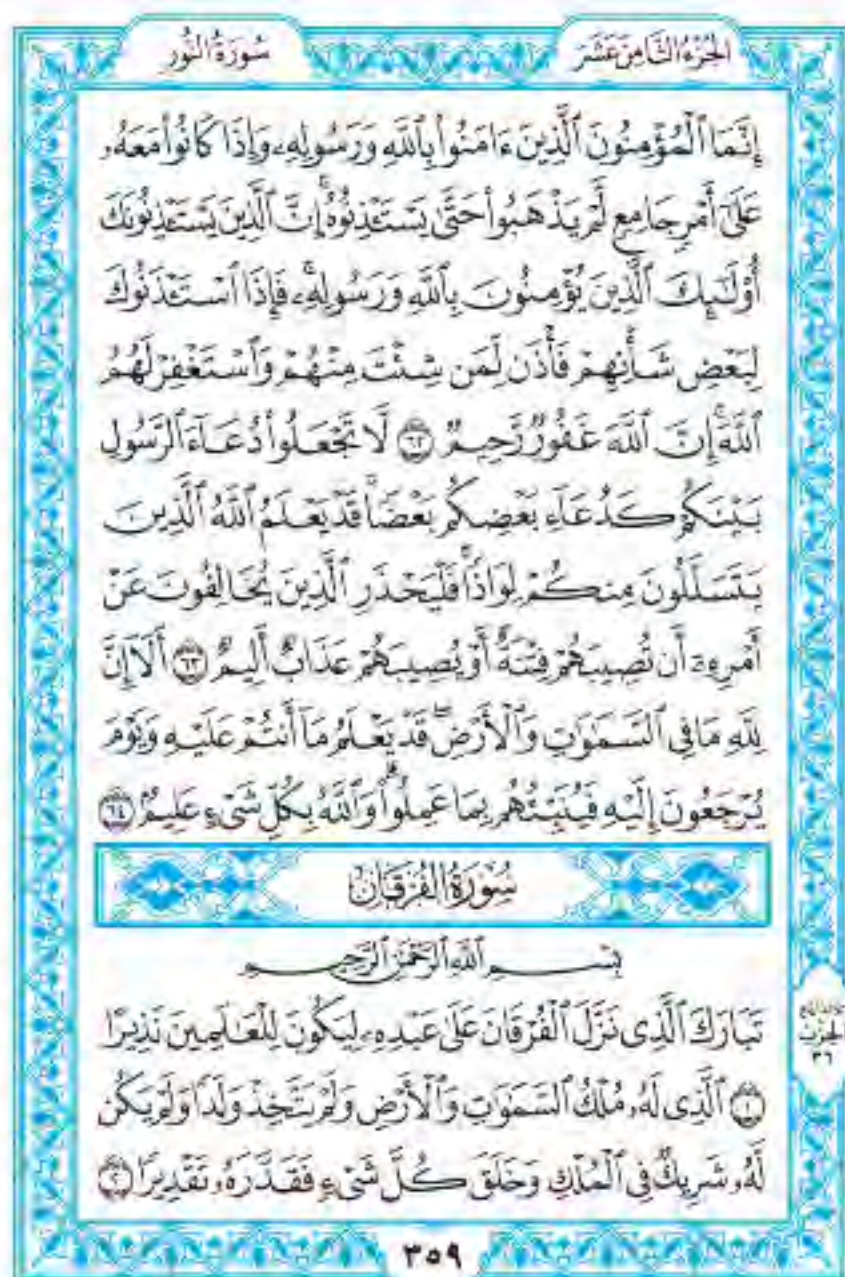 الجزء الثامن عشر
سورة النور
إِنَّمَا ٱلْمُؤْمِنُونَ ٱلَّذِينَ ءَامَنُوا۟ بِٱللَّهِ وَرَسُولِهِۦ وَإِذَا كَانُوا۟ مَعَهُۥ
عَلَىٰٓ أَمْرٍ جَامِعٍ لَّمْ يَذْهَبُوا۟ حَتَّىٰ يَسْتَـْٔذِنُوهُ ۚ إِنَّ ٱلَّذِينَ يَسْتَـْٔذِنُونَكَ
أُو۟لَـٰٓئِكَ ٱلَّذِينَ يُؤْمِنُونَ بِٱللَّهِ وَرَسُولِهِۦ ۚ فَإِذَا ٱسْتَـْٔذَنُوكَ
لِبَعْضِ شَأْنِهِمْ فَأْذَن لِّمَن شِئْتَ مِنْهُمْ وَٱسْتَغْفِرْ لَهُمُ
ٱللَّهَ ۚ إِنَّ ٱللَّهَ غَفُورٌ رَّحِيمٌ ٦٢ لَّا تَجْعَلُوا۟ دُعَآءَ ٱلرَّسُولِ
بَيْنَكُمْ كَدُعَآءِ بَعْضِكُم بَعْضًا ۚ قَدْ يَعْلَمُ ٱللَّهُ ٱلَّذِينَ
يَتَسَلَّلُونَ مِنكُمْ لِوَاذًا ۚ فَلْيَحْذَرِ ٱلَّذِينَ يُخَالِفُونَ عَنْ
أَمْرِهِۦٓ أَن تُصِيبَهُمْ فِتْنَةٌ أَوْ يُصِيبَهُمْ عَذَابٌ أَلِيمٌ ٦٣ أَلَآ إِنَّ
لِلَّهِ مَا فِى ٱلسَّمَـٰوَٰتِ وَٱلْأَرْضِ ۖ قَدْ يَعْلَمُ مَآ أَنتُمْ عَلَيْهِ وَيَوْمَ
يُرْجَعُونَ إِلَيْهِ فَيُنَبِّئُهُم بِمَا عَمِلُوا۟ ۗ وَٱللَّهُ بِكُلِّ شَىْءٍ عَلِيمٌ ٦٤
سورة الفرقان
بِسْمِ ٱللَّهِ ٱلرَّحْمَـٰنِ ٱلرَّحِيمِ
تَبَارَكَ ٱلَّذِى نَزَّلَ ٱلْفُرْقَانَ عَلَىٰ عَبْدِهِۦ لِيَكُونَ لِلْعَـٰلَمِينَ نَذِيرًا
١ ٱلَّذِى لَهُۥ مُلْكُ ٱلسَّمَـٰوَٰتِ وَٱلْأَرْضِ وَلَمْ يَتَّخِذْ وَلَدًا وَلَمْ يَكُن
لَّهُۥ شَرِيكٌ فِى ٱلْمُلْكِ وَخَلَقَ كُلَّ شَىْءٍ فَقَدَّرَهُۥ تَقْدِيرًا ٢
الحزب
٣٦
٣٥٩